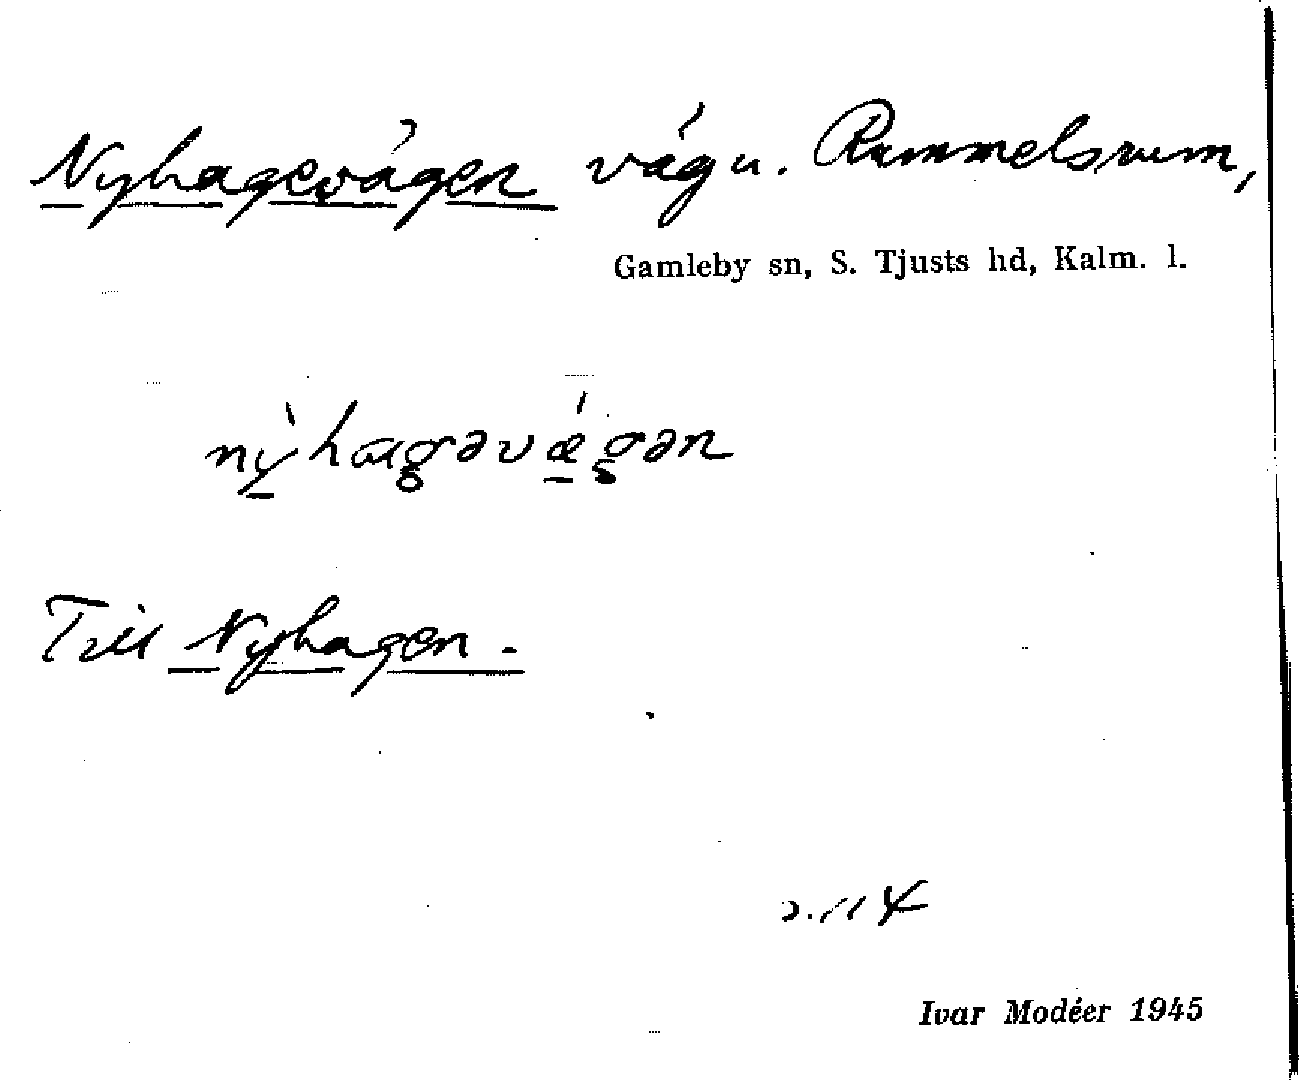 Nyhagevägen väg u. Rummelsrum,
Gamleby sn, S. Tjusts hd, Kalm. l.
nỳhagəvǽgən
Till Nyhagen.
Ivar Modéer 1945